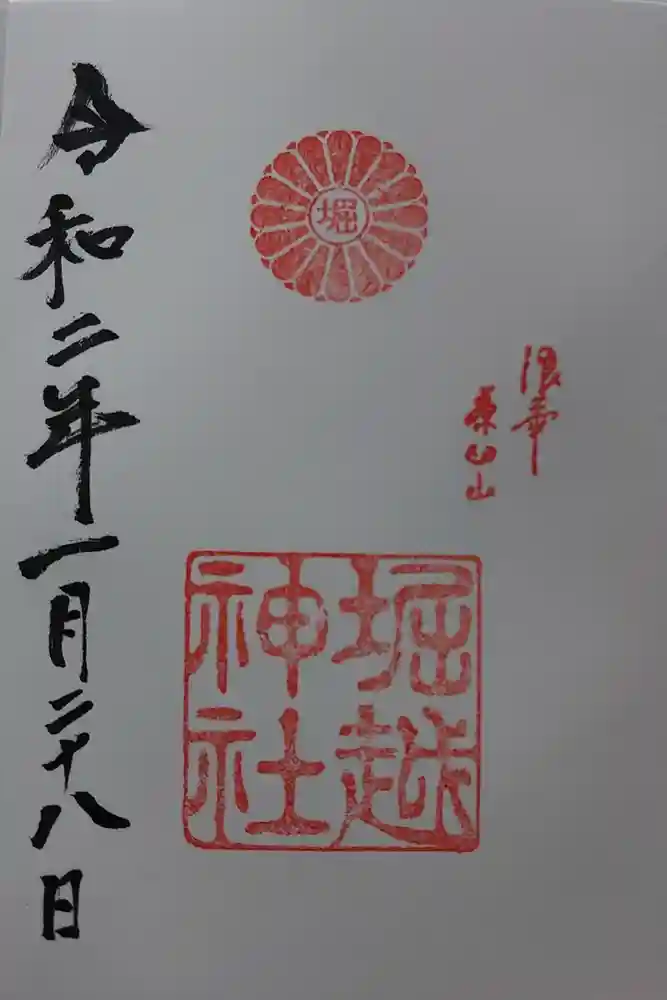 浪華
茶臼山
堀
堀越
神社
令和二年一月二十八日